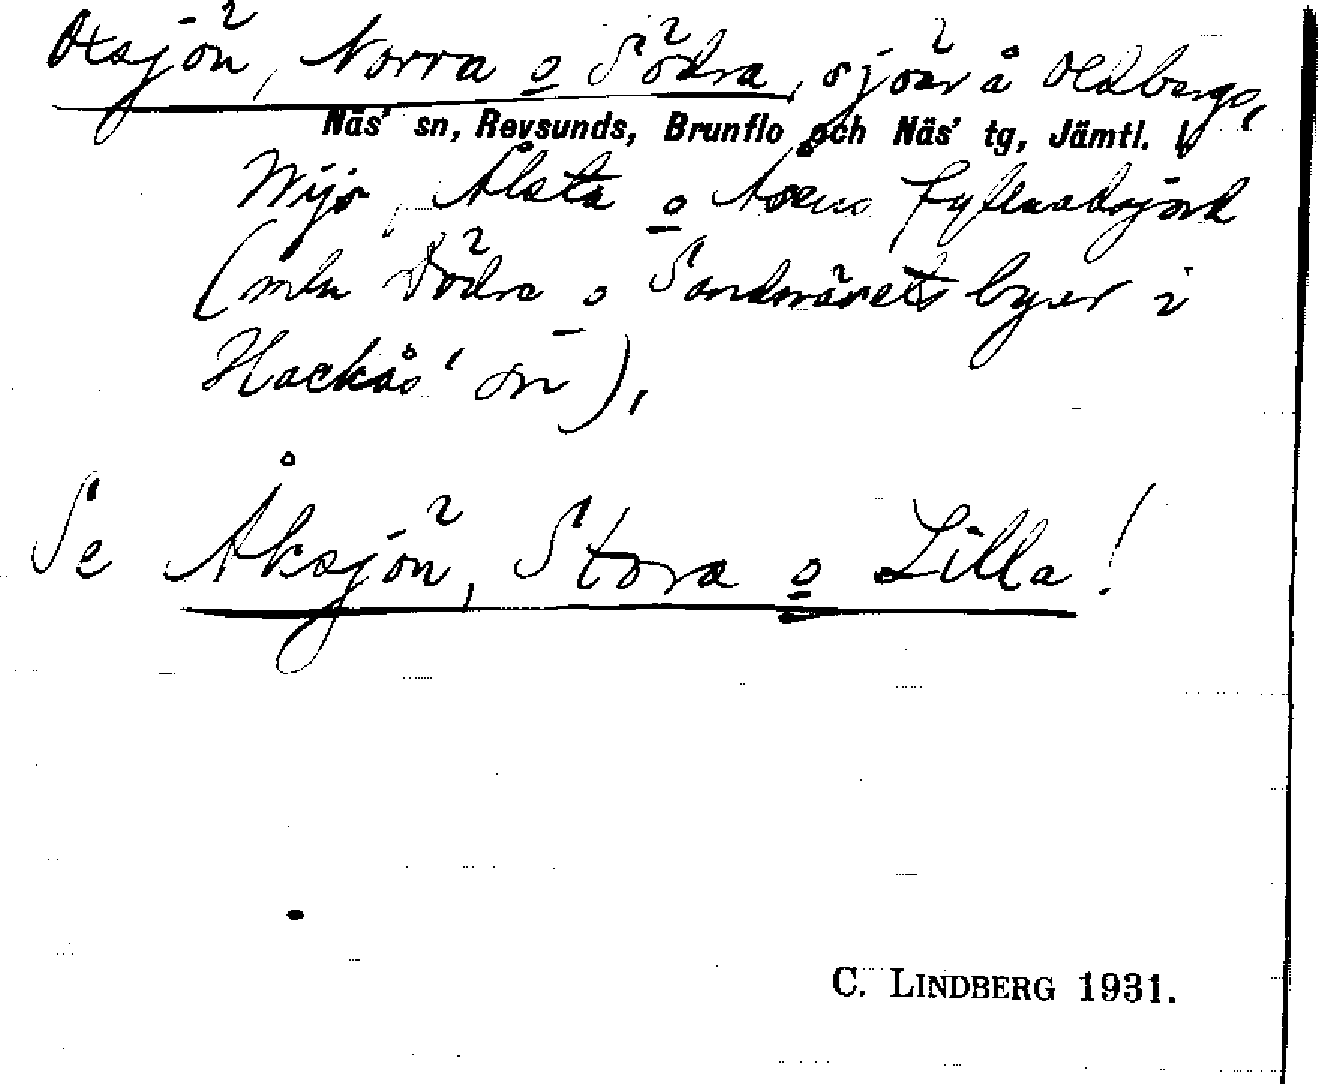 Oxsjön, Norra o Södra, sjöar å Oldbergs,
Näs' sn, Revsunds, Brunflo och Näs' tg, Jämtl.
Myre, Ålsta o Åsens fyllnadsjord
(mln Södra o Sandnäsets byar i
Hackås' sn),
Se Åksjön, Stora o Lilla!
C. LINDBERG 1931.